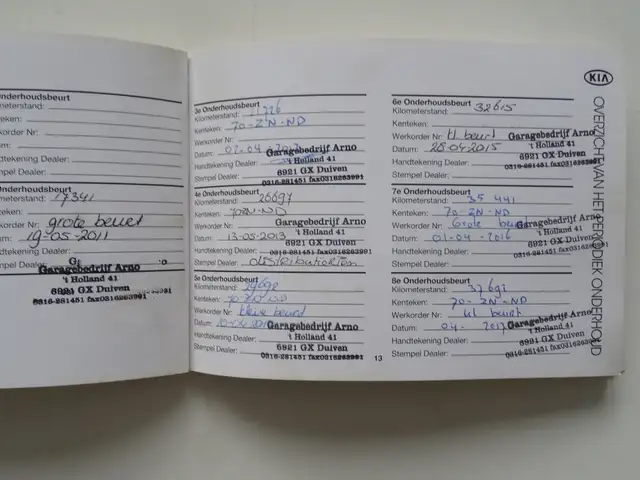 Onderhoudsbeurt
meterstand:
enteken:
korder Nr:
Datum:
Handtekening Dealer:
Stempel Dealer:
Onderhoudsbeurt
meterstand: 17341
nteken:
korder Nr: grote beurt
atum: 19-05-2011
Handtekening Dealer:
Stempel Dealer:
Garagebedrijf Arno
't Holland 41
6921 GX Duiven
0316-281451 fax0316263991
3e Onderhoudsbeurt
Kilometerstand:
Kenteken: 70-ZN-ND
Werkorder Nr:
Datum: 02-04-2012
Handtekening Dealer:
Stempel Dealer:
Garagebedrijf Arno
't Holland 41
6921 GX Duiven
0316-281451 fax0316263991
4e Onderhoudsbeurt
Kilometerstand: 26697
Kenteken: 70ZN-ND
Werkorder Nr:
Datum: 13-05-2013
Handtekening Dealer:
Stempel Dealer:
Garagebedrijf Arno
't Holland 41
6921 GX Duiven
0316-281451 fax0316263991
5e Onderhoudsbeurt
Kilometerstand:
Kenteken: 70 ZN ND
Werkorder Nr: kleine beurt
Datum:
Handtekening Dealer:
Stempel Dealer:
Garagebedrijf Arno
't Holland 41
6921 GX Duiven
0316-281451 fax0316263991
13
KIA
OVERZICHT VAN HET PERIODIEK ONDERHOUD
6e Onderhoudsbeurt
Kilometerstand: 32615
Kenteken:
Werkorder Nr: kl beurt
Datum: 28-04-2015
Handtekening Dealer:
Stempel Dealer:
Garagebedrijf Arno
't Holland 41
6921 GX Duiven
0316-281451 fax0316263991
7e Onderhoudsbeurt
Kilometerstand: 35 441
Kenteken: 70-ZN-ND
Werkorder Nr: Grote beurt
Datum: 01-04-2016
Handtekening Dealer:
Stempel Dealer:
Garagebedrijf Arno
't Holland 41
6921 GX Duiven
0316-281451 fax0316263991
8e Onderhoudsbeurt
Kilometerstand: 37691
Kenteken: 70-ZN-ND
Werkorder Nr: kl beurt
Datum: 04- 2017
Handtekening Dealer:
Stempel Dealer:
Garagebedrijf Arno
't Holland 41
6921 GX Duiven
0316-281451 fax0316263991